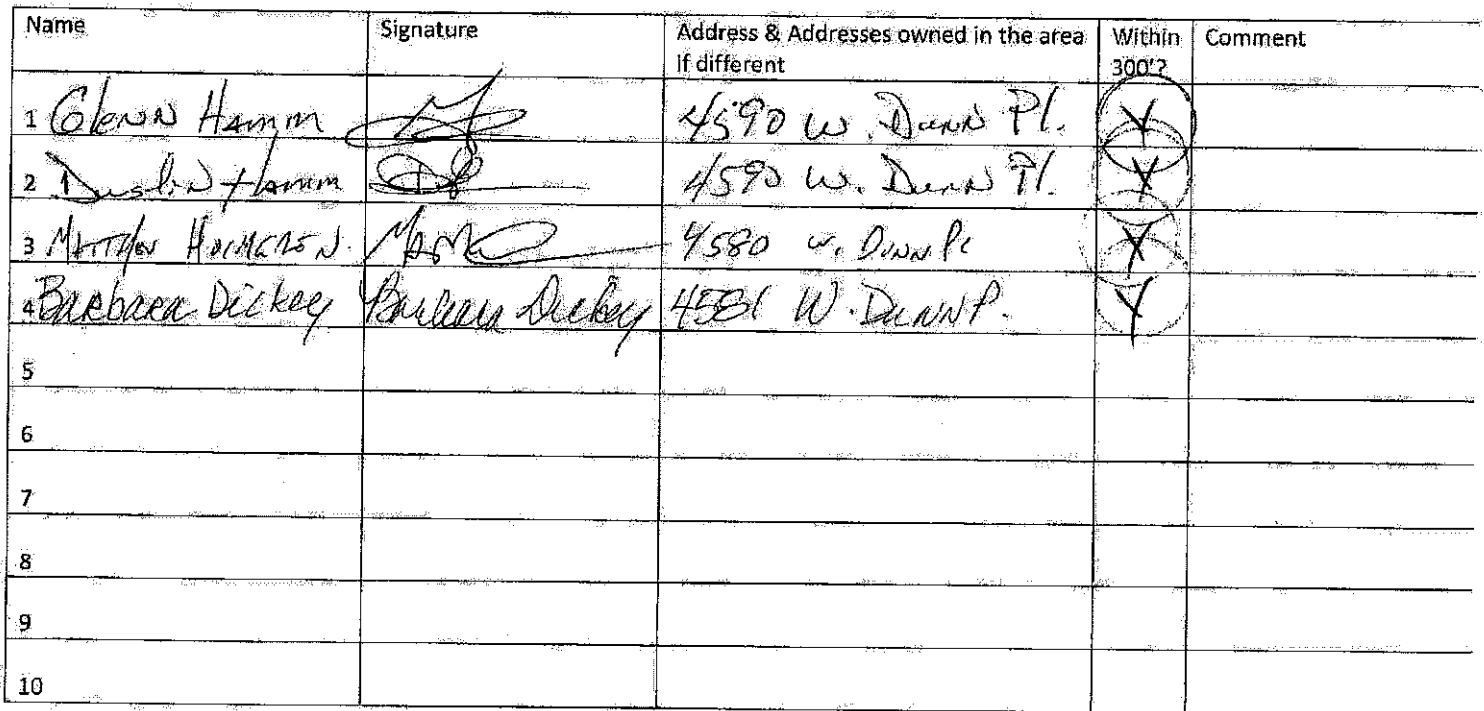 Name Signature Address & Addresses owned in the area if different Within 300'? Comment
1 Glenn Hamm 4590 W. Dunn Pl. Y
2 Dustin Hamm 4590 W. Dunn Pl. Y
3 Matthew Holmgren 4580 W. Dunn Pl Y
4 Barbara Dickey Barbara Dickey 4581 W. Dunn P. Y
5
6
7
8
9
10